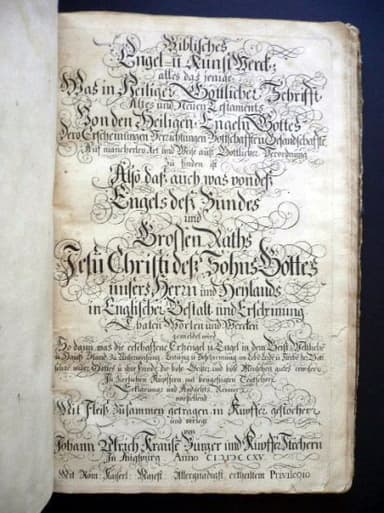 Biblisches
Engel- u Kunst Werck;
alles das jenige,
Was in Heiliger Göttlicher Schrifft
Altes und Neuen Testaments
Von den Heiligen Engeln Gottes
Dero Erscheinungen Verrichtungen Bottschafften u Gesandschafften
Auf mancherley Art und Weise auß Göttlicher Verordnung
zu finden ist
Also daß auch was von deß
Engels deß Bundes
und
Großen Raths
Jesu Christi deß Sohns Gottes
unsers Herrn und Heylands
in Englischer Gestalt und Erscheinung
Thaten Worten und Wercken
gemeldet wird
So dann was die erschaffene Ertzengel u Engel in dem
und böse Menschen
In zierlichen Kupffern mit beygefügten
Erklärungs und Andachts Reimen
vorstellend
Mit Fleiß zusammen getragen in Kupffer gestochen
und verlegt
von
Johann Ulrich Krauß Burger und Kupffer Stechern
In Augspurg Anno CIƆIƆCXCV
Mit Röm: Kayserl: Majest: Allergnädigst ertheiltem Privilegio